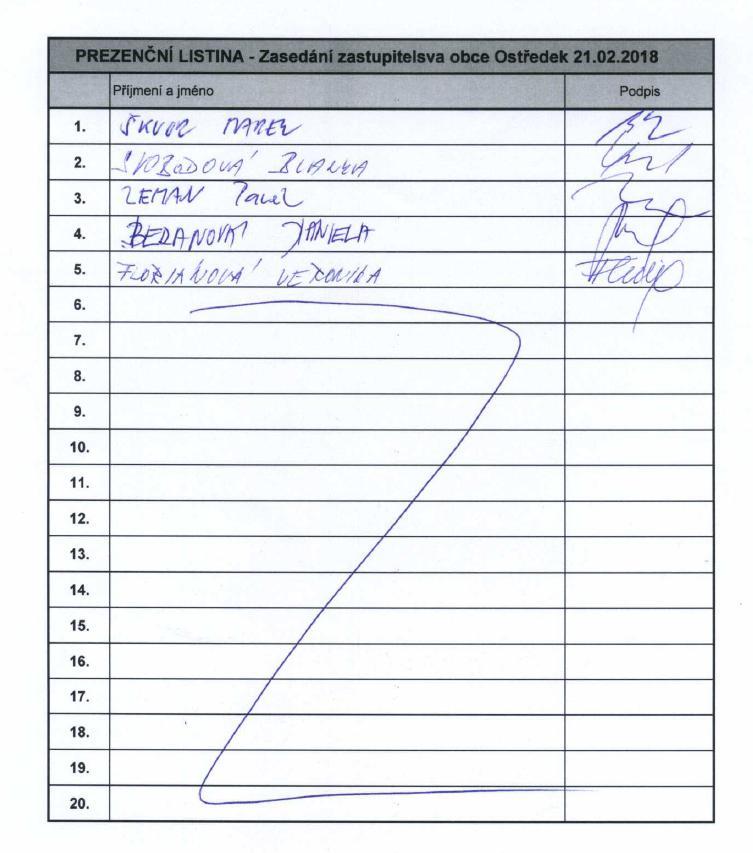 PREZENČNÍ LISTINA - Zasedání zastupitelsva obce Ostředek 21.02.2018
Příjmení a jméno Podpis
1. ŠKVOR MAREK
2. SVOBODOVÁ BLANKA
3. ZEMAN Pavel
4. BERANOVÁ DANIELA
5. FLORIÁNOVÁ VERONIKA
6.
7.
8.
9.
10.
11.
12.
13.
14.
15.
16.
17.
18.
19.
20.